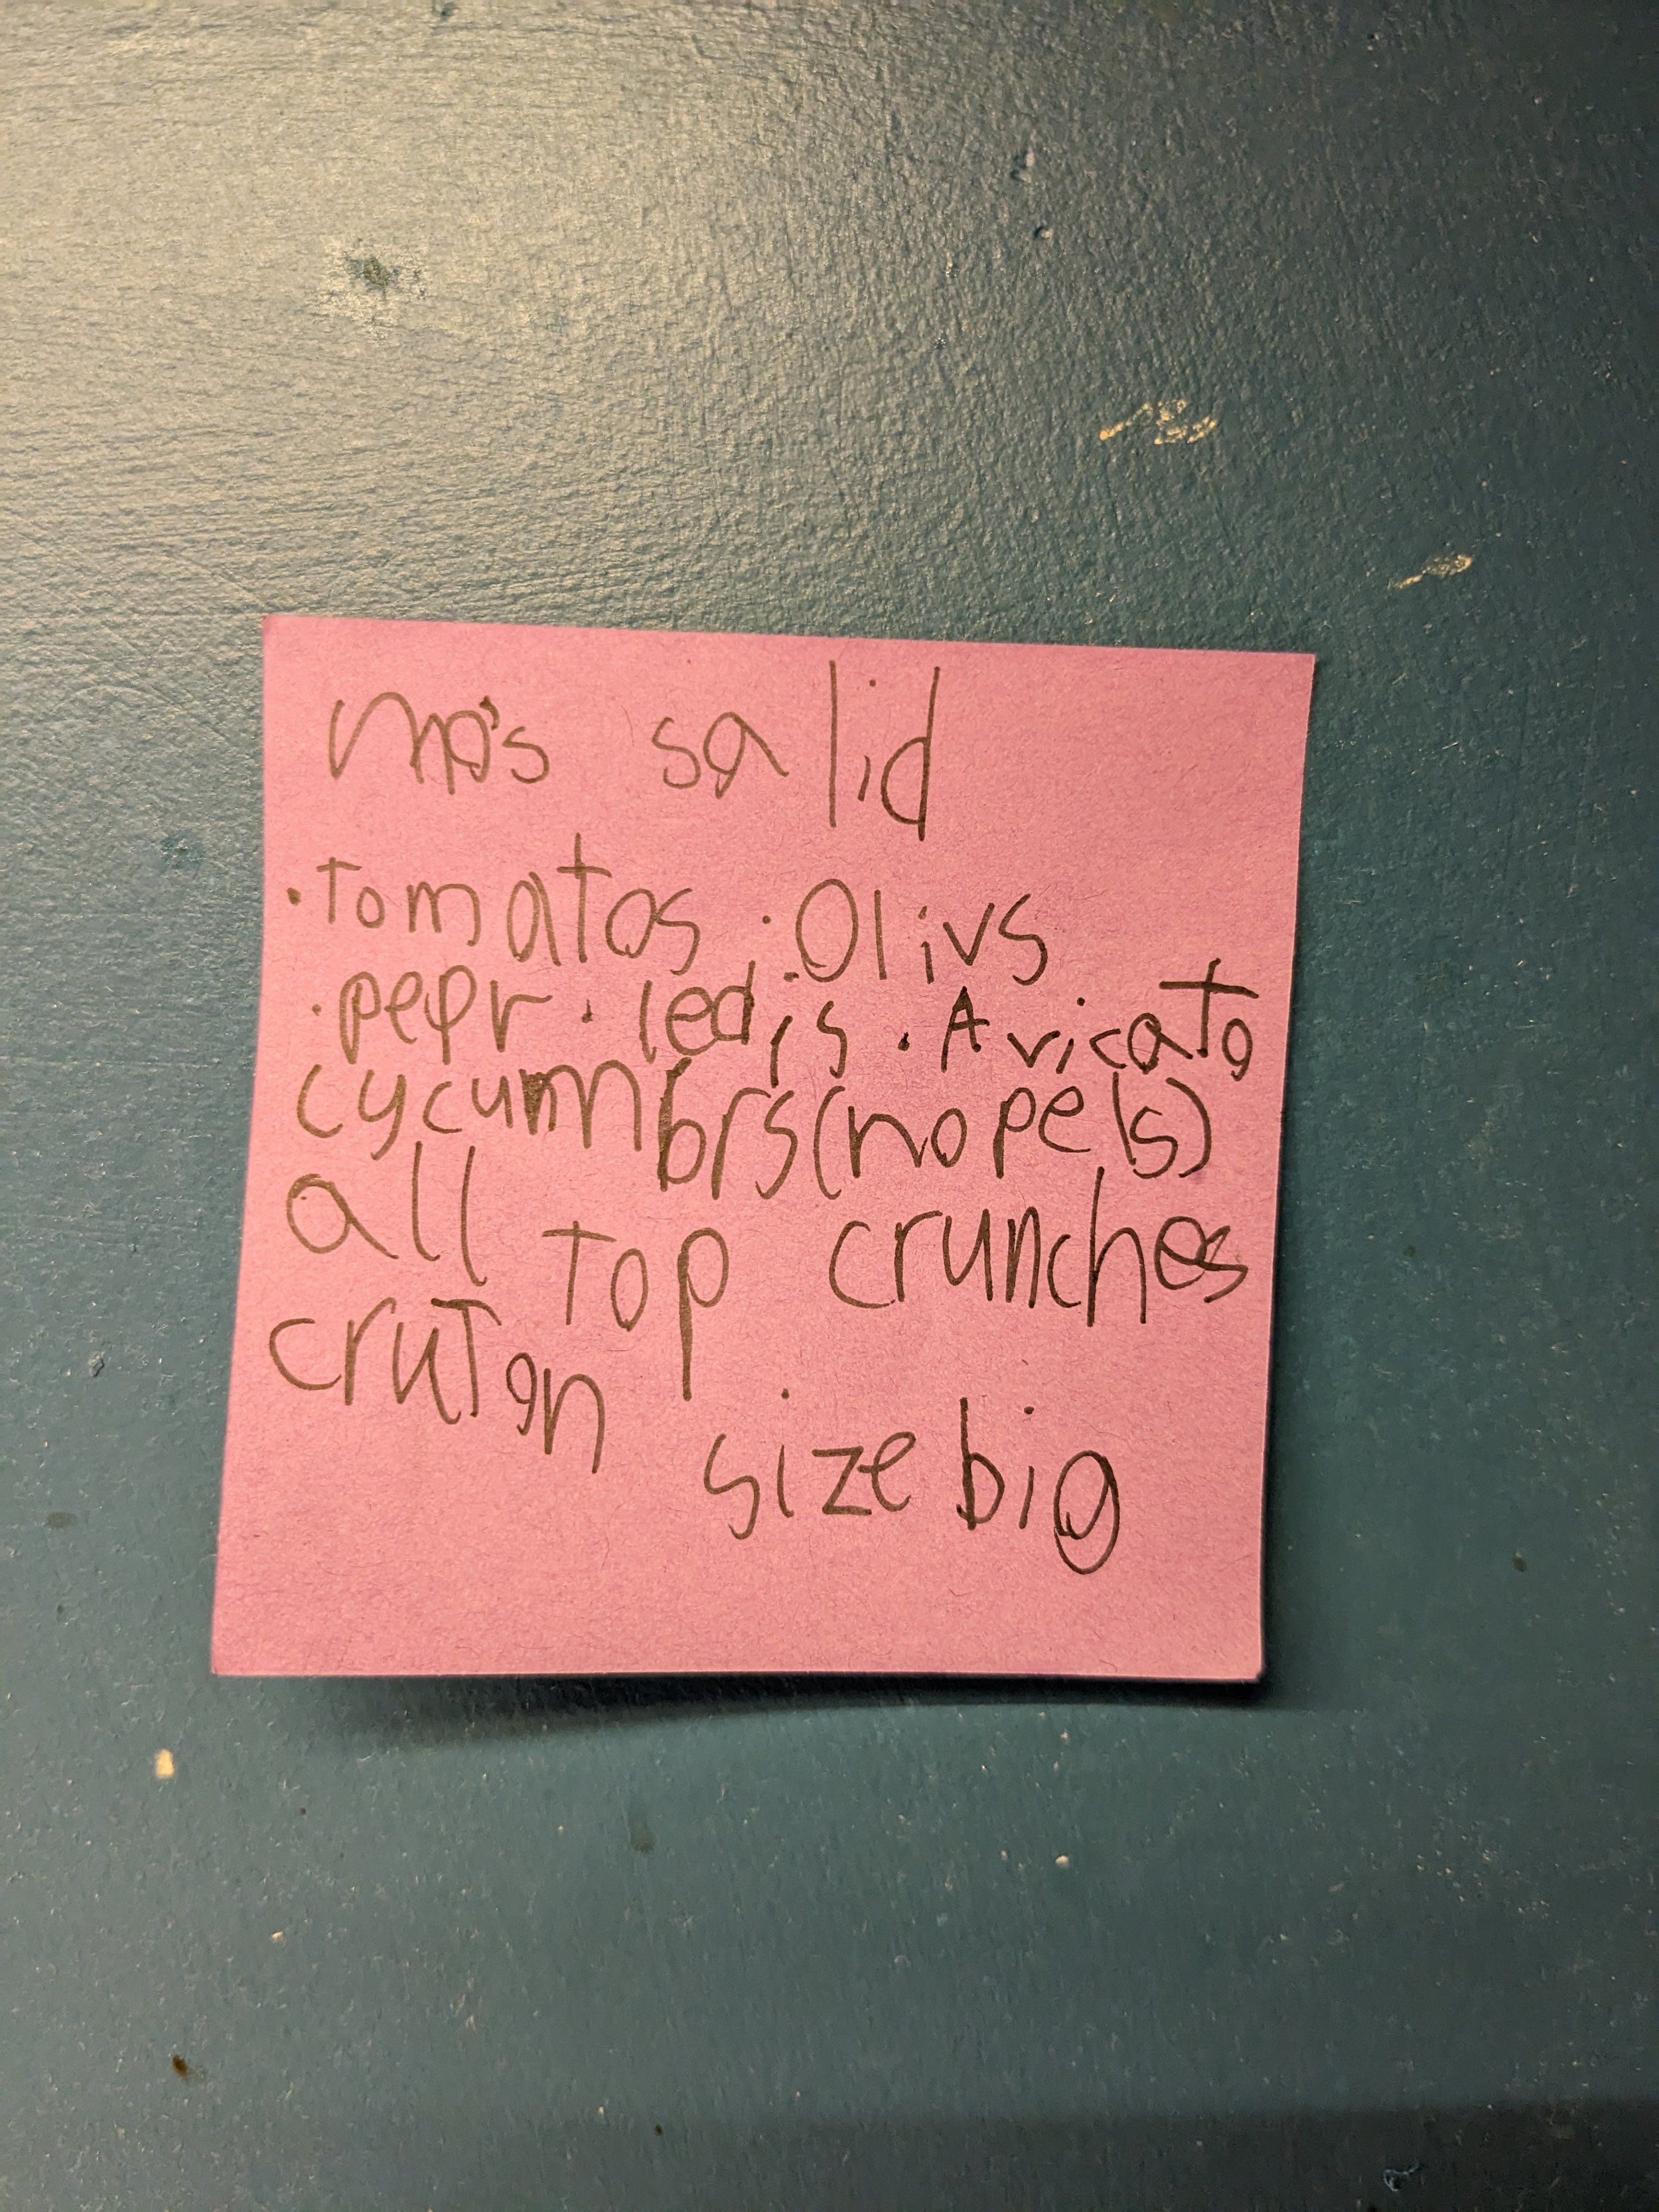 mo's salid
·Tomatos ·Olivs
·pepr ·ledis ·Avicato
cycumbrs(no pels)
all top crunches
cruton size big